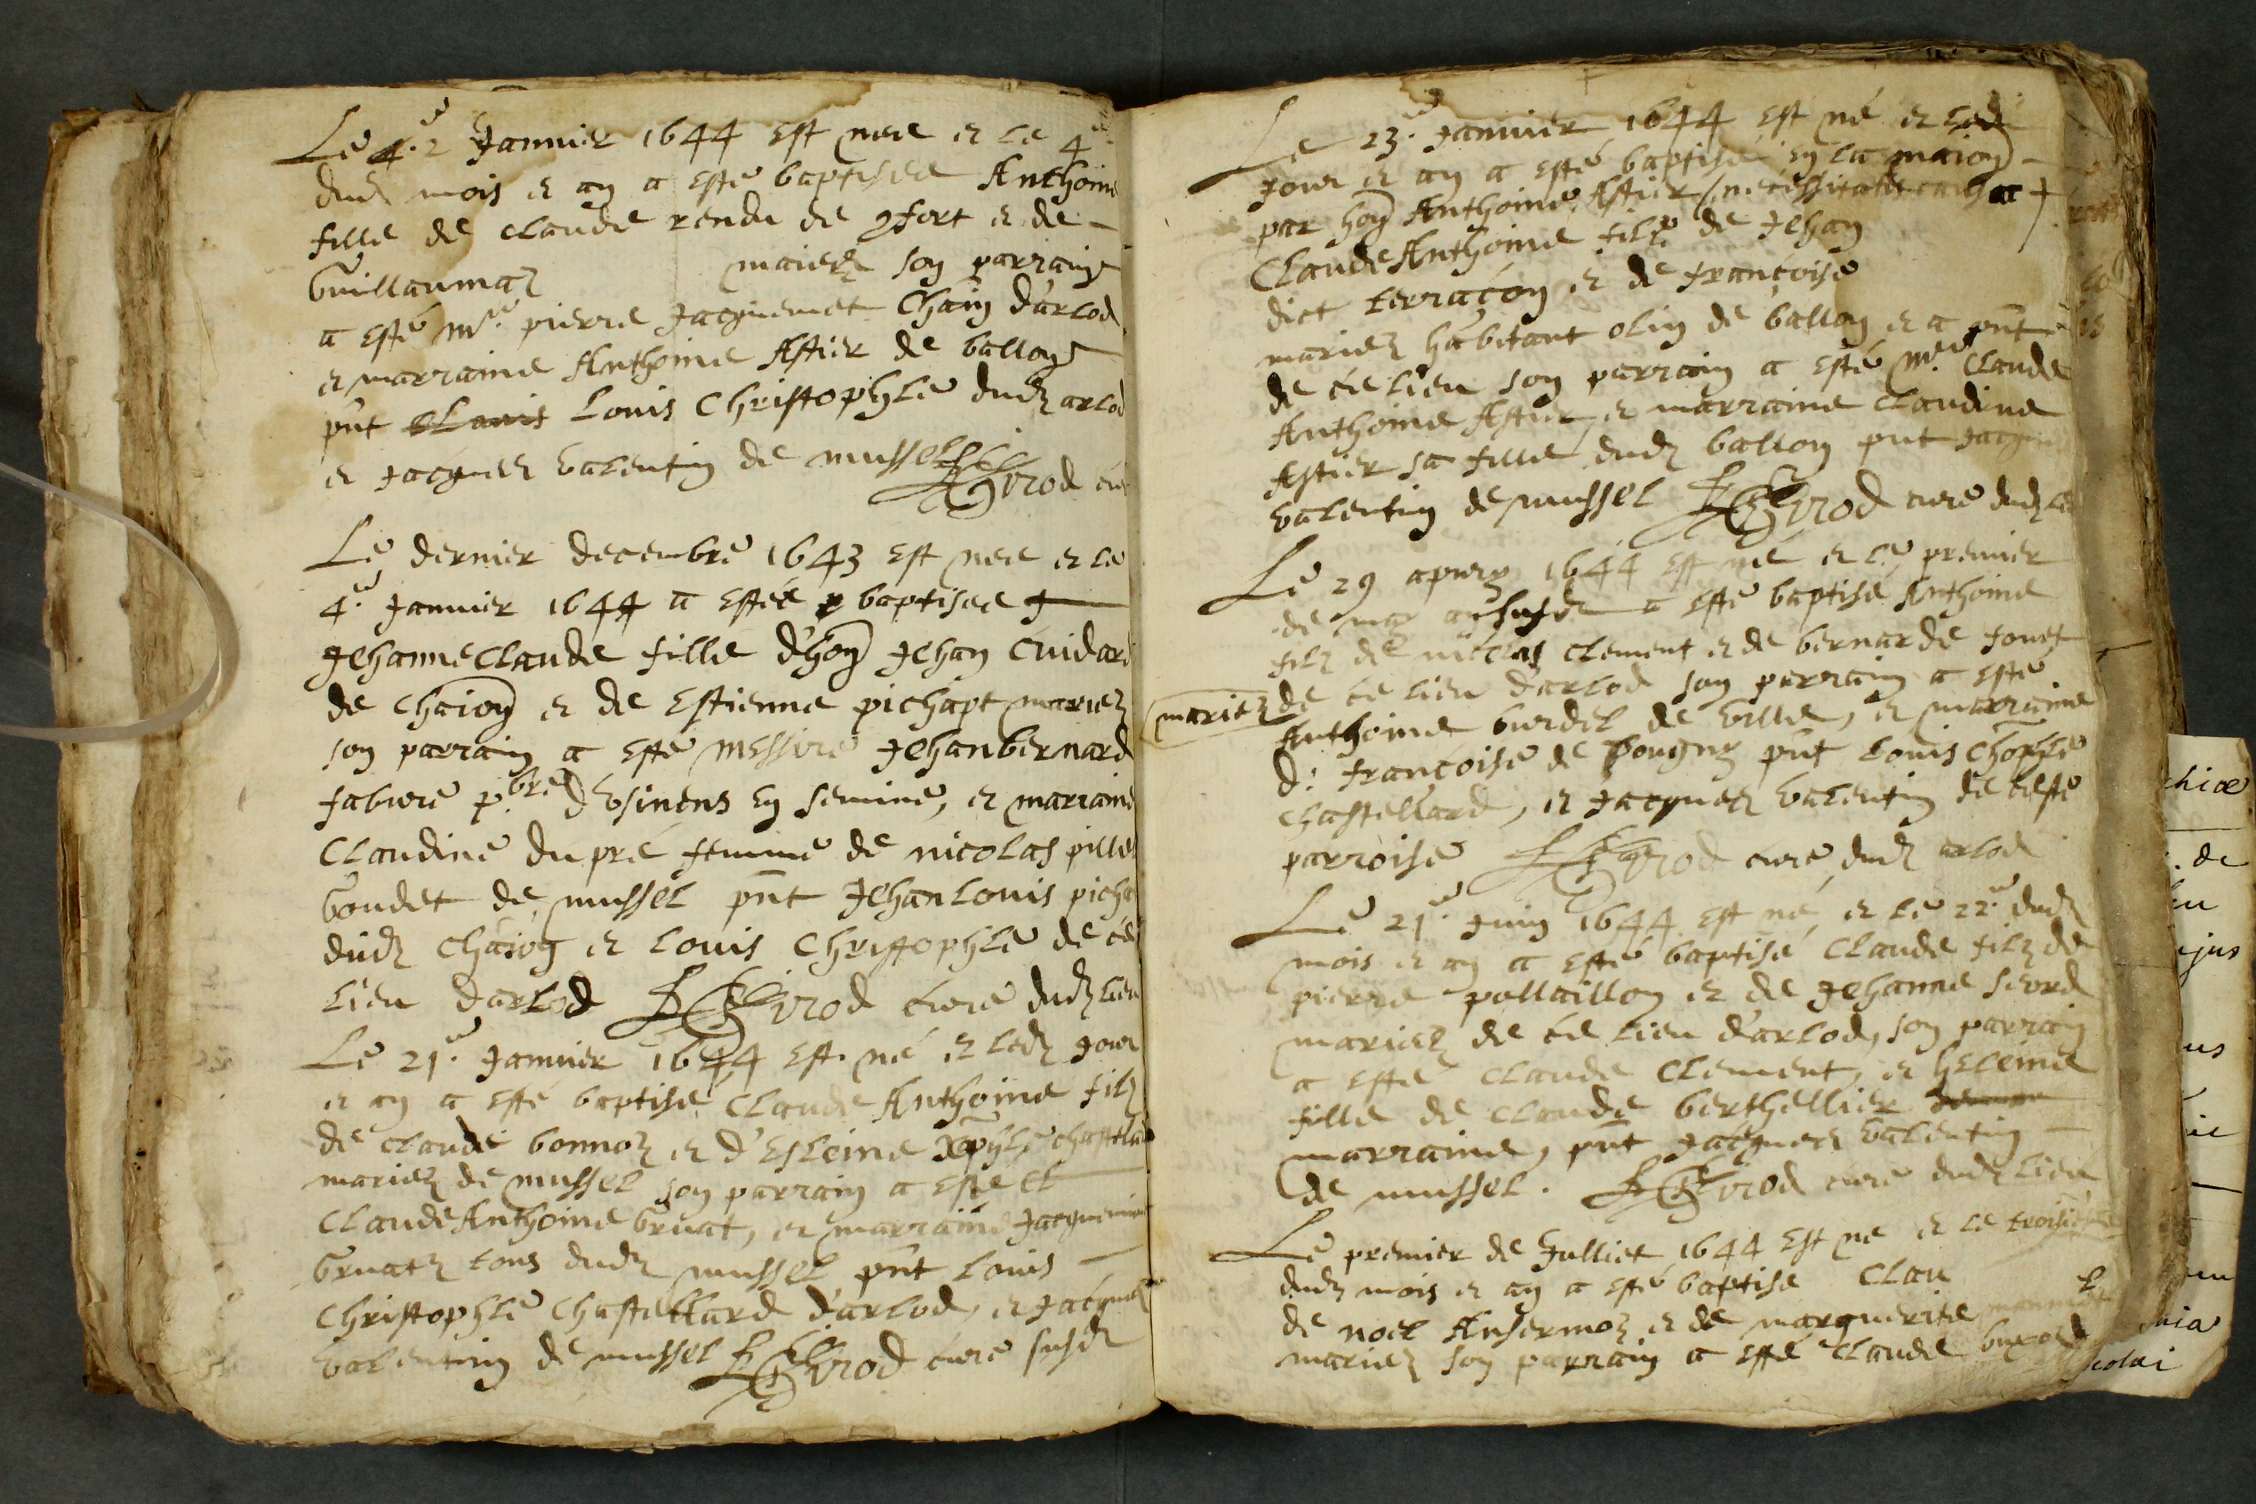 Le 2 Januier 1644 est nee et le 4e
dud mois et an a esté baptisee Anthoine
fille de claude rendu de 9fort et de
Guillauma mariez son parrain
a esté Mre pierre Jacquemet Chain d'arlod
et marraine Anthoine Astier de ballon
pnt Louis Christophle dud arlod
et Jacques valentin de mussel
Le dernier decembre 1643 est nee et le
4e Januier 1644 a estée baptisee
Jehanne Claude fille d'hon Jehan Cuidard
de chaion et de Estienne pichapt mariez
son parrain a esté messire Jehanbernard
fabure pbre d'Vsinens en semine, et mariaine
Claudine du pré femme de nicolas pillie
Goudet de mussel pnt Jehanlouis picha
dud chaion et Louis Christophle de ce
lieu d'arlod curé dud lieu
Le 21e Januier 1644 est né et led Jour
et an a esté baptisé Claude Anthoine filz
de claude bonnoz et d'Esleine Xophle chastela
mariez de mussel son parrain a esté
Claude Anthoine Gruat, et marraine Jacquemine
Gruatz tous dud mussel pnt Louis
Christophle Chastellard d'arlod, et Jacques
valentin de mussel curé susd
Le 23e Januier 1644 est né et led
Jour et an a esté baptisé en la maion
par hon Anthoine Astier (necessitatis causa)
Claude Anthoine filz de Jehan
dict terraçon et de françoise
mariez habitant olin de ballon et a pnt
de ce lieu son parrain a esté Mre Claude
Anthoine Astier, et marraine claudine
Astier sa fille dud ballon pnt Jacques
valentin de mussel curé dud lieu
Le 29 apuril 1644 est né et le premier
de may an susd a esté baptisé Anthoine
filz de nicolas Clement et de bernarde fouet
mariez de ce lieu d'arlod son parrain a esté
Anthoine burdel de ville, et marraine
d. françoise de Gougny pnt Louis Chophle
chastellard, et Jacques valentin de ceste
parroise curé dud arlod
Le 21e Juin 1644 est né et le 22e dud
mois et an a esté baptisé Claude filz de
pierre pollaillon et de Jehanne seord
mariez de ce lieu d'arlod, son parrain
a esté Claude Clement, et heleine
fille de Claude berthellier
marraine, pnt Jacques valentin
de mussel. curé dud lieu
Le premier de Julliet 1644 est né et le troisiesme
dud mois et an a esté baptisé Clau
de noel Ansermoz et de marguerite
mariez son parrain a esté Claude